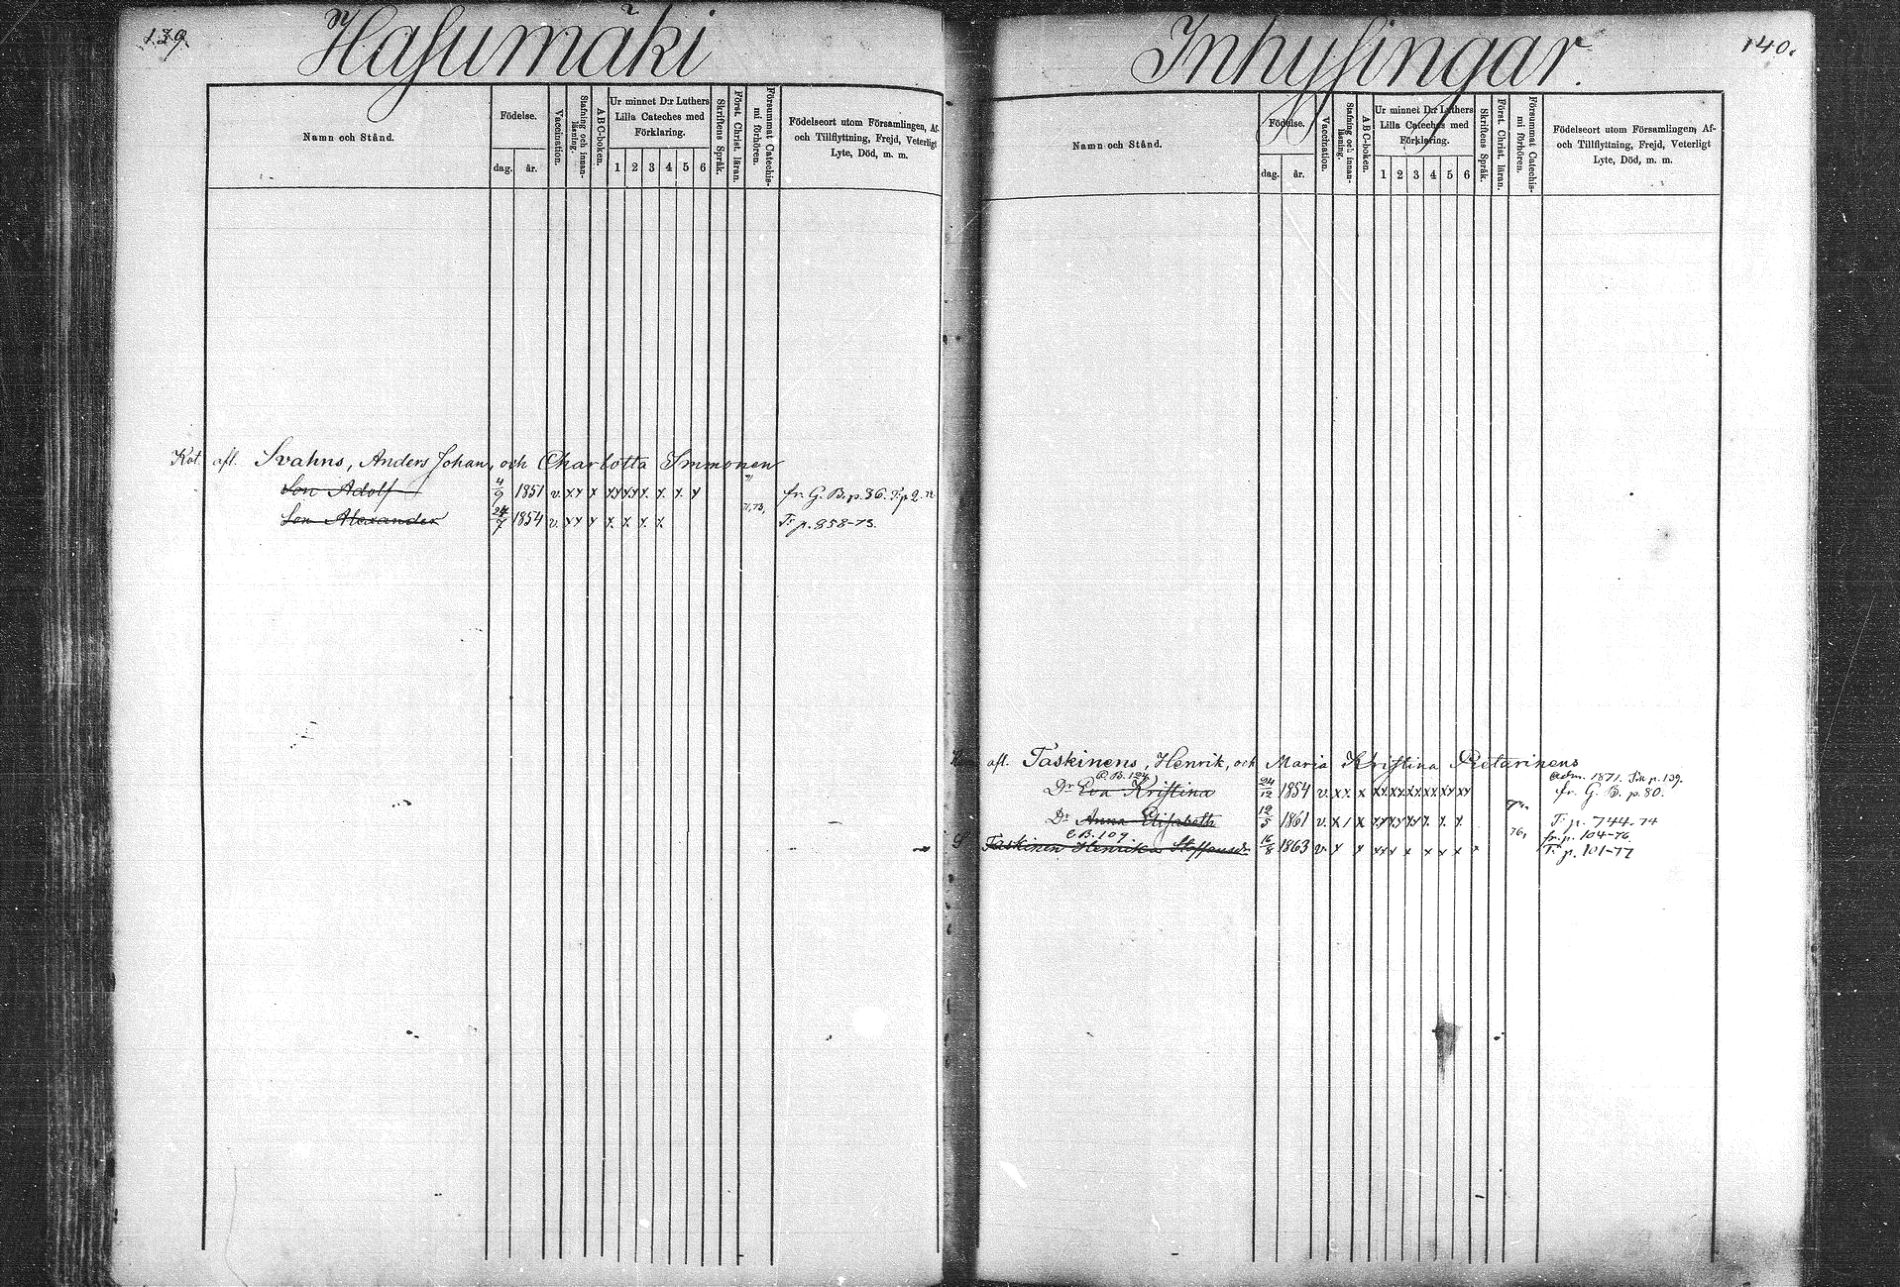 139.
Hasumäki
Namn och Stånd.
Födelse.
dag.
år.
Vaccination.
Stafning och innan-
läsning.
ABC-boken.
Ur minnet D:r Luthers
Lilla Cateches med
Förklaring.
1 2 3 4 5 6
Skriftens Språk.
Först. Christ. läran.
Försummat Catechis-
mi förhören.
Födelseort utom Församlingen, Af-
och Tillflyttning, Frejd, Veterligt
Lyte, Död, m. m.
Kot. afl. Svahns, Anders Johan, och Charlotta Immonen
Son Adolf 4/9 1851 v. xx x xx xx x. x. x. x fr. G. B. p. 36.
Son Alexander 24/7 1854 v. xx x x. x. x. x. 71,73, T: p. 858-73.
140.
Inhysingar.
Namn och Stånd.
Födelse.
dag.
år.
Vaccination.
Stafning och innan-
läsning.
ABC-boken.
Ur minnet D:r Luthers
Lilla Cateches med
Förklaring.
1 2 3 4 5 6
Skriftens Språk.
Först. Christ. läran.
Försummat Catechis-
mi förhören.
Födelseort utom Församlingen, Af-
och Tillflyttning, Frejd, Veterligt
Lyte, Död, m. m.
afl. Taskinens, Henrik, och Maria Kristina Pietarinens
C. B. 124 Adm. 1871. p. 139.
Dr Eva Kristina 24/12 1854 v. xx x xx xx xx xx xx xx fr. G. B. p. 80.
Dr Anna Elisabeth 12/5 1861 v. x / x xx xx xx x. x. x. T: p. 744-74
C B. 109 76, fr. p. 104-76.
Taskinen Henrika Staffansdr 16/8 1863 v. x x xx x x x x x x T: p. 101-77